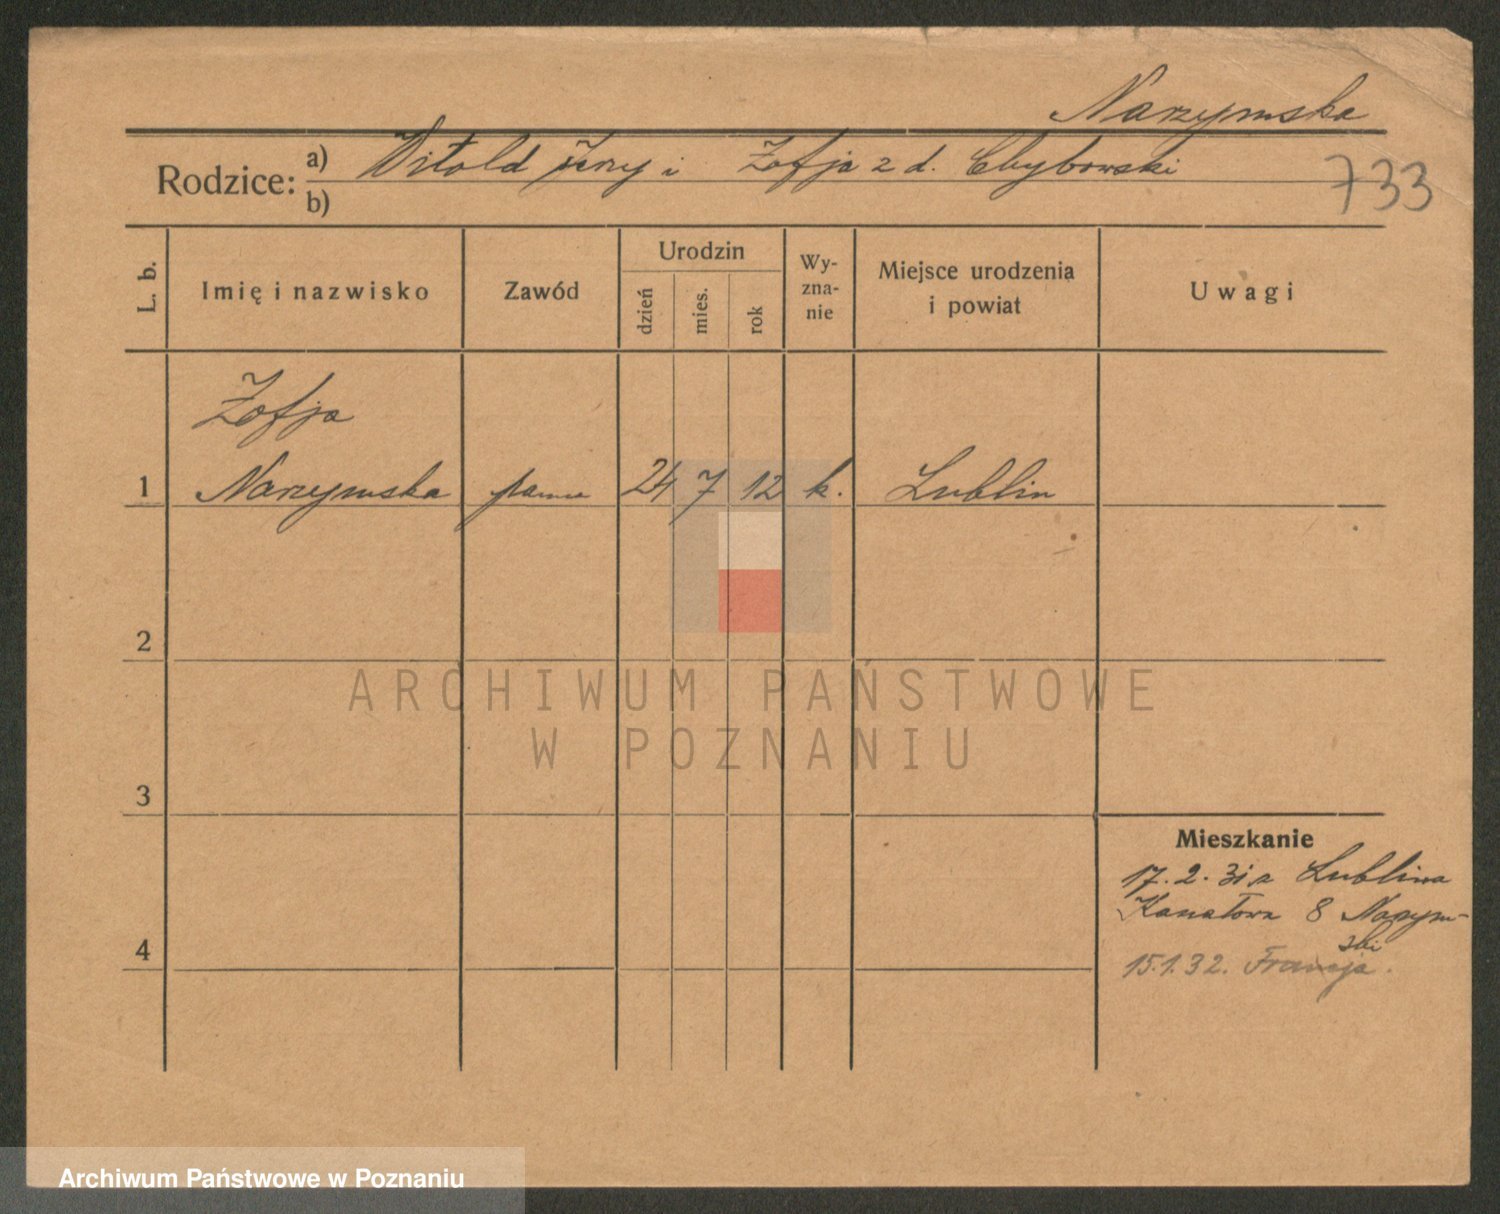 Narzymska
Rodzice: a) Witold Jerzy i Zofja z d. Chybowski
b)
733
L. b.
Imię i nazwisko
Zawód
Urodzin
dzień
mies.
rok
Wy-
zna-
nie
Miejsce urodzenia
i powiat
Uwagi
Zofja
1 Narzymska panna 24 7 12 k. Lublin
2
ARCHIWUM PAŃSTWOWE
W POZNANIU
3
Mieszkanie
17.2.31 z Lublina
Kanałowa 8 Narzym-
ski
4
15.1.32. Francja.
Archiwum Państwowe w Poznaniu